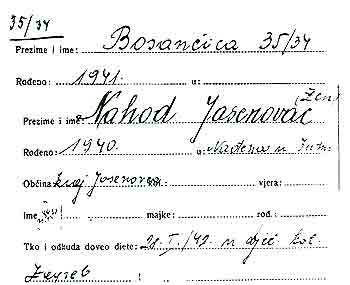 35/34
Prezime i ime: Bosančica 35/34
Rođeno: 1941. u:
(Žen)
Prezime i ime: Nahod Jasenovac
Rođeno: 1940. u: Nađena u
Općina: kraj Jasenovca kot.: vjera:
Ime majke: rod.:
Tko i odkuda doveo diete: 21. I. /42. u dječ
Zagreb